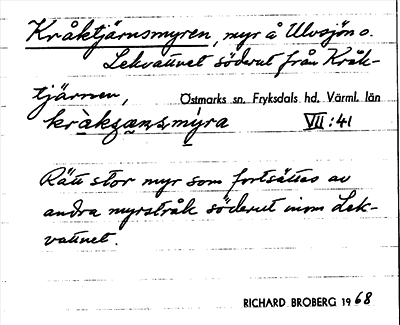 Kråktjärnsmyren, myr å Ulvsjön o.
Lekvattnet söderut från Kråk-
tjärnen,
Östmarks sn. Fryksdals hd. Värml. län
krakʒanṣmỵra VII:41
Rätt stor myr som fortsättes av
andra myrstråk söderut inom Lek-
vattnet.
RICHARD BROBERG 1968